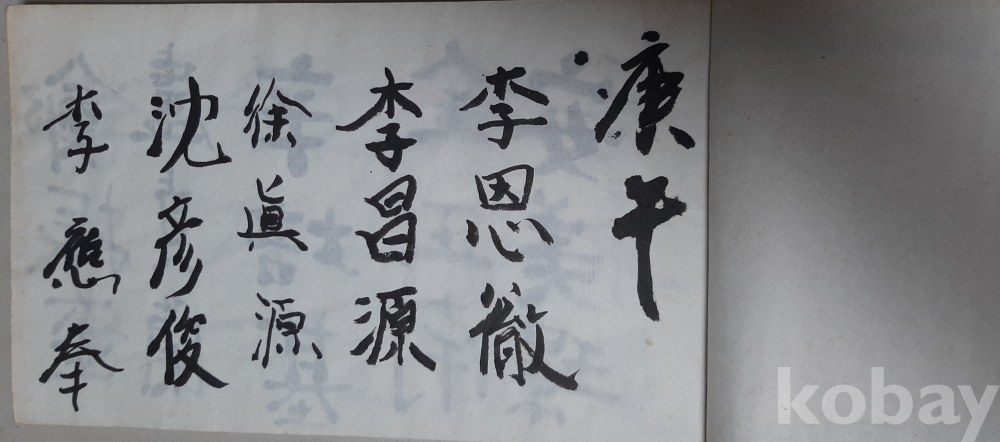 庚午
李恩徹
李昌源
徐眞源
沈彦俊
李應奉
kobay